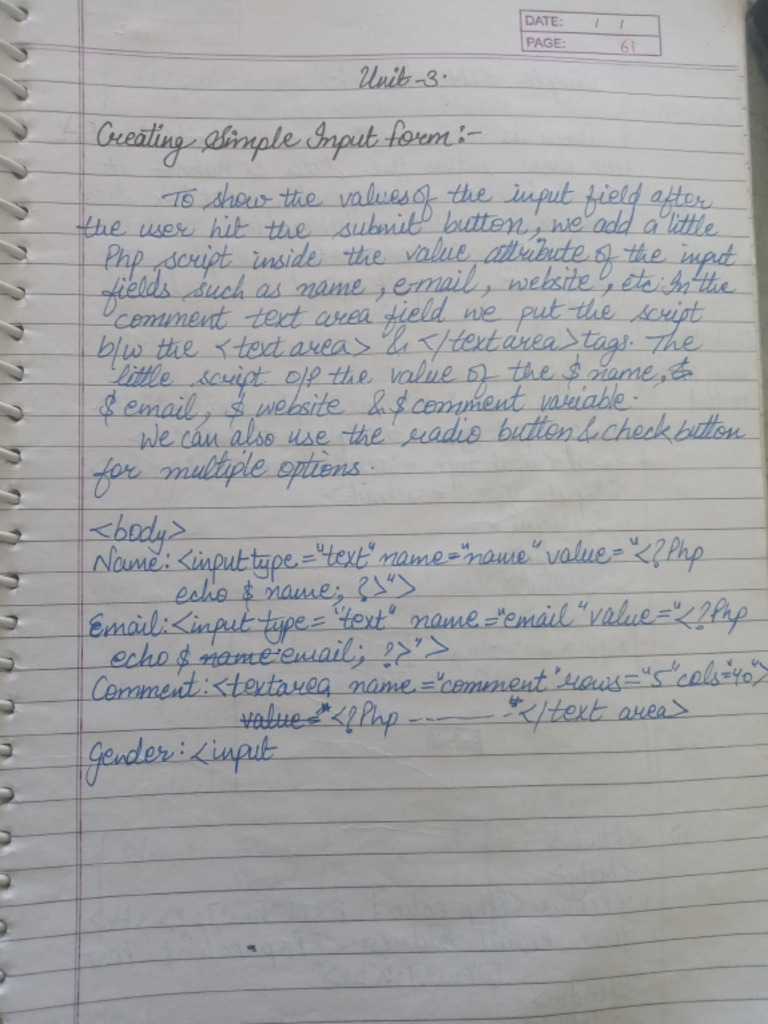 DATE: / /
PAGE: 61
Unit-3.
Creating Simple Input form:-
To show the values of the input field after
the user hit the submit button, we add a little
Php script inside the value attribute of the input
fields such as name, email, website, etc. In the
comment text area field we put the script
b/w the <text area> & </text area> tags. The
little script o/p the value of the $ name,
$ email, $ website & $ comment variable.
We can also use the radio button & check button
for multiple options.
<body>
Name: <input type="text" name="name" value="<?Php
echo $ name; ?>">
Email: <input type="text" name="email" value="<?Php
echo $ name email; ?>">
Comment: <textarea name="comment" rows="5" cols="40">
value=" <?Php --------- </text area>
Gender: <input